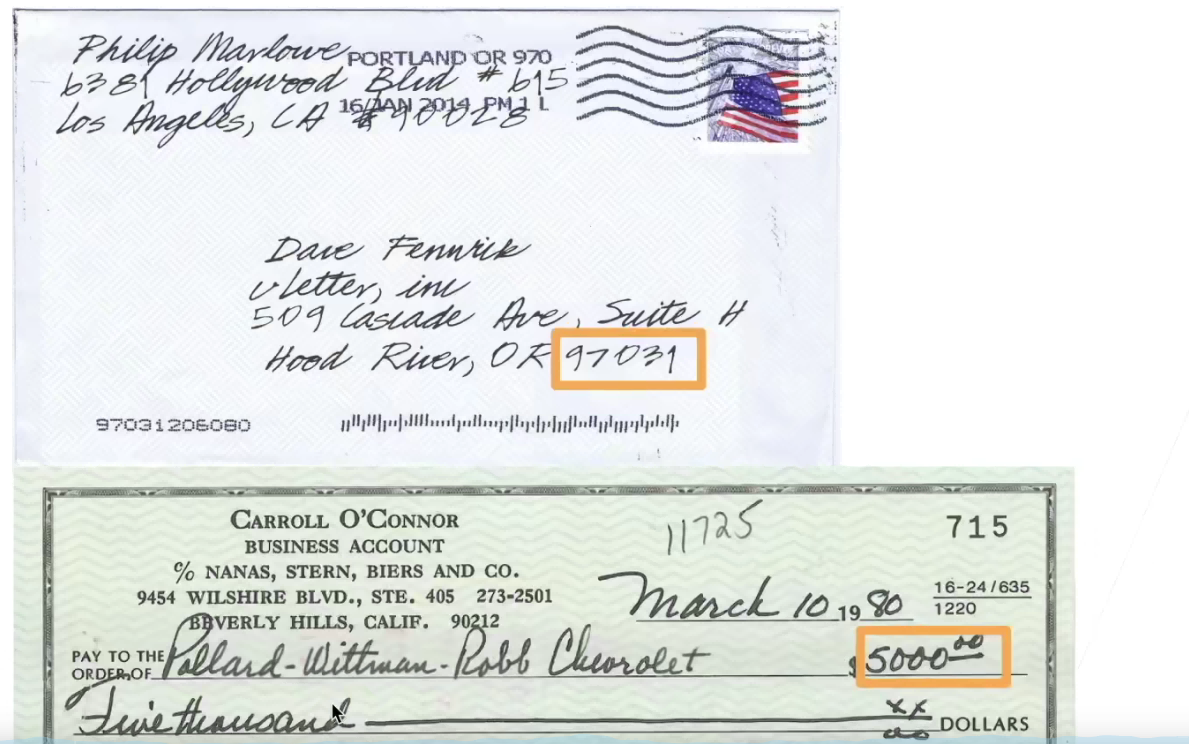 Philip Marlowe PORTLAND OR 970
6381 Hollywood Blvd # 615
16 JAN 2014 PM 1 L
Los Angeles, CA 90028
Dave Fennwick
v-letter, inc
509 Cascade Ave, Suite H
Hood River, OR 97031
97031206080
CARROLL O'CONNOR
BUSINESS ACCOUNT
% NANAS, STERN, BIERS AND CO.
9454 WILSHIRE BLVD., STE. 405 273-2501
BEVERLY HILLS, CALIF. 90212
11725
715
March 10 19 80
16-24/635
1220
PAY TO THE
ORDER OF Pollard-Wittman-Robb Chevrolet $ 5000 00
Five thousand xx
00 DOLLARS